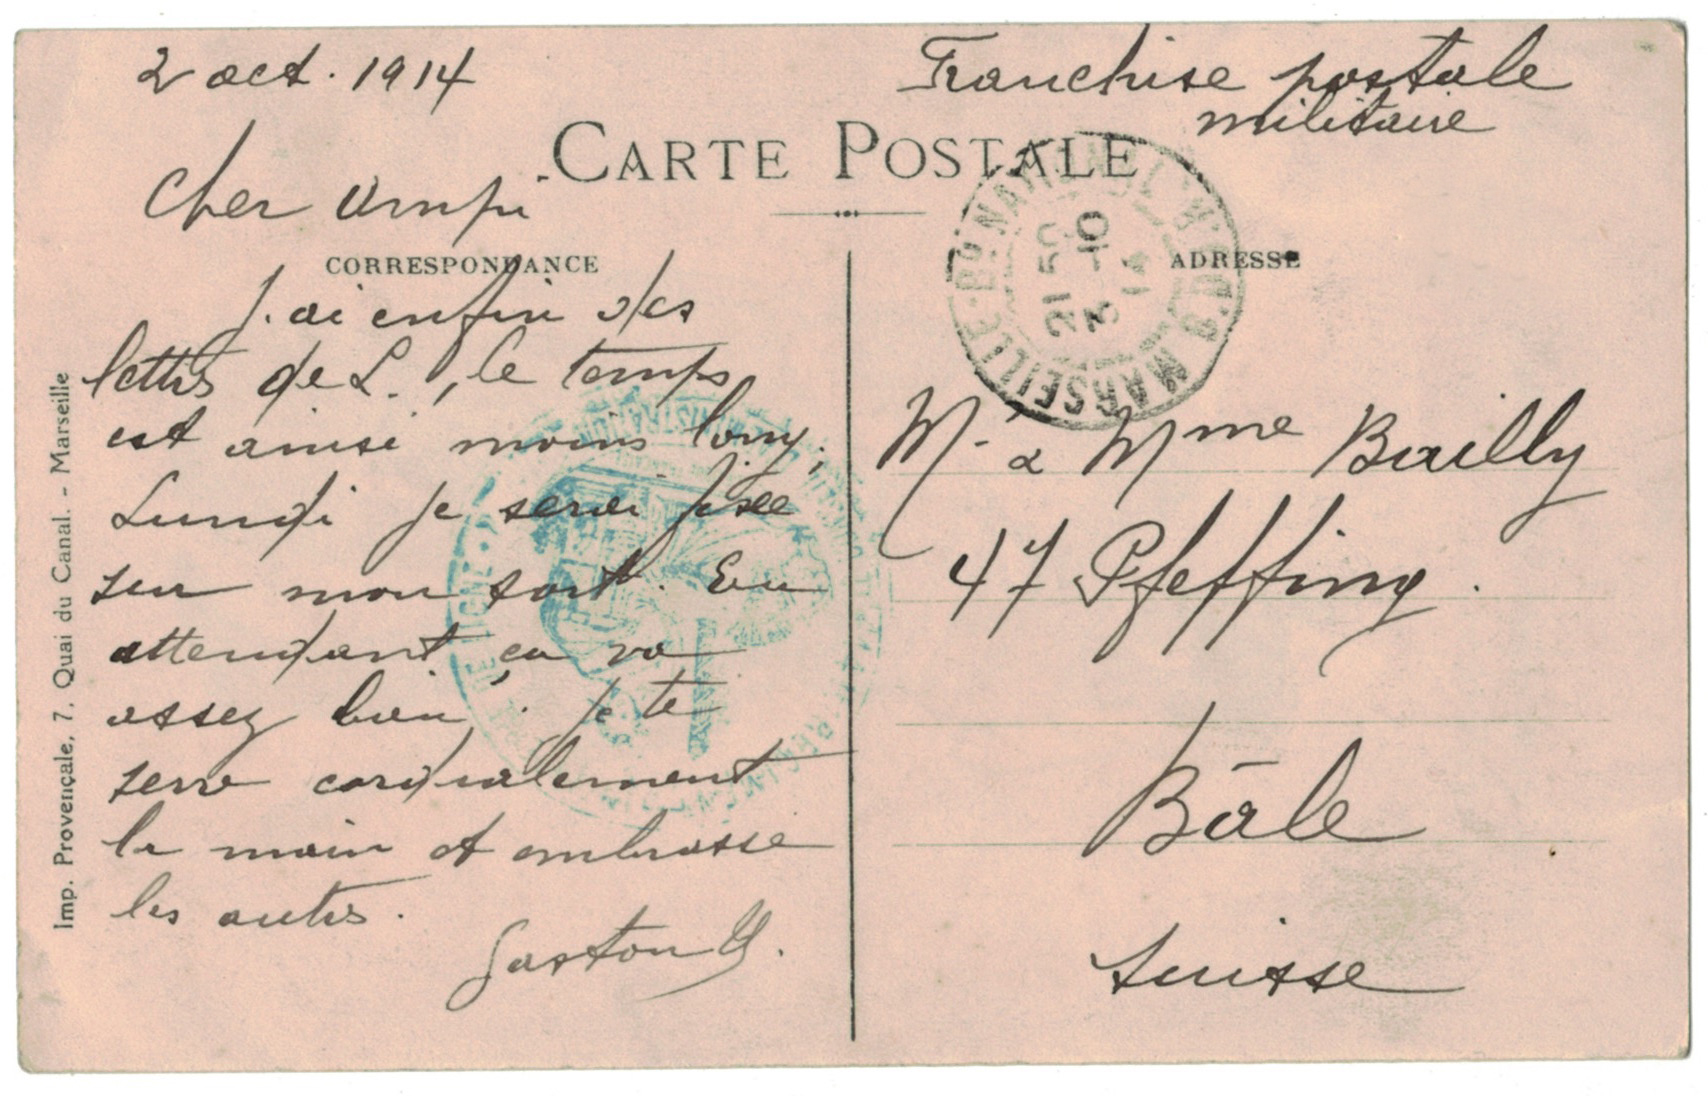 2 oct. 1914
Franchise postale
militaire
CARTE POSTALE
Cher
CORRESPONDANCE
ADRESSE
J'ai enfin des
lettres de L., le temps
est ainsi moins long,
Lundi je serai fixée
sur mon sort. En
attendant, ça va
assez bien. Je te
serre cordialement
la main et embrasse
les autres.
Gaston
M. & Mme Bailly
47 Pfeffing.
Bâle
Suisse
MARSEILLE
21 50
3 - 10
14
Imp. Provençale, 7, Quai du Canal. - Marseille